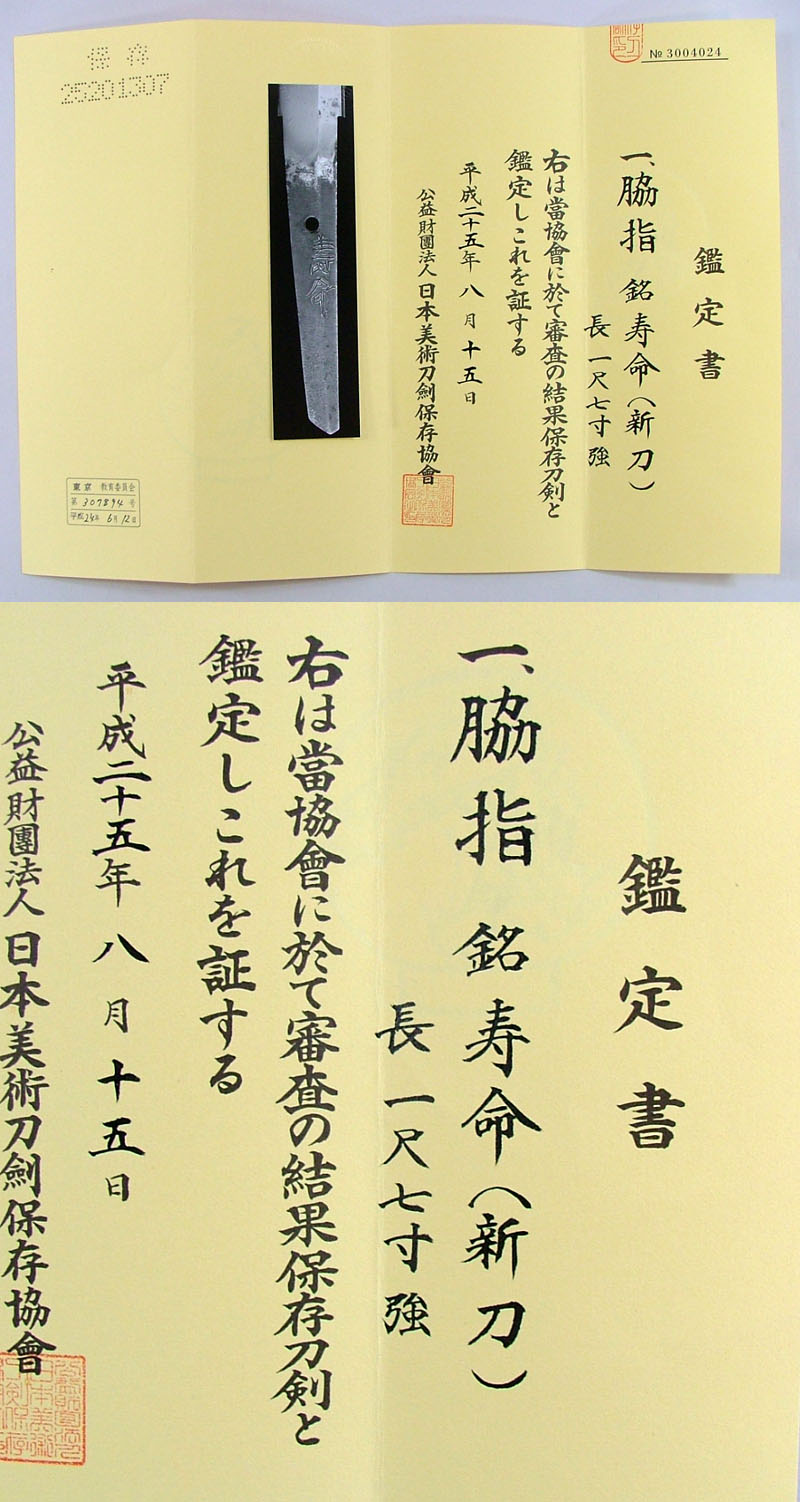 № 3004024
鑑定書
一、脇指 銘 寿命(新刀)
長 一尺七寸強
右は當協會に於て審査の結果保存刀剣と
鑑定しこれを証する
平成二十五年 八月十五日
公益財團法人 日本美術刀劍保存協會
寿命
保存
25201307
東京 教育委員会
第 307894 号
平成 24年 6月 12日
鑑定書
一、脇指 銘 寿命(新刀)
長 一尺七寸強
右は當協會に於て審査の結果保存刀剣と
鑑定しこれを証する
平成二十五年 八月十五日
公益財團法人 日本美術刀劍保存協會